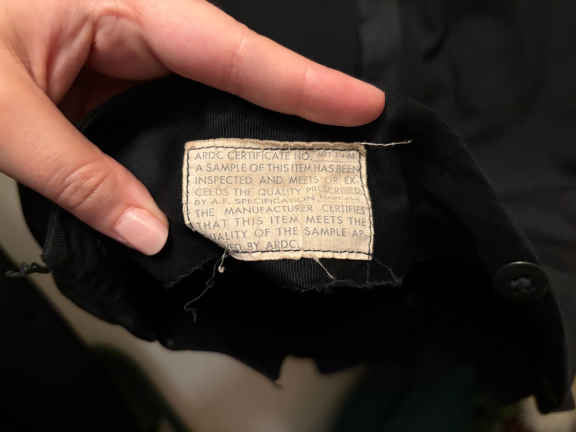 ARDC CERTIFICATE NO.
A SAMPLE OF THIS ITEM HAS BEEN
INSPECTED AND MEETS OR EX-
CEEDS THE QUALITY PRESCRIBED
BY A.F. SPECIFICATION
THE MANUFACTURER CERTIFIES
THAT THIS ITEM MEETS THE
QUALITY OF THE SAMPLE AP-
BY ARDC.